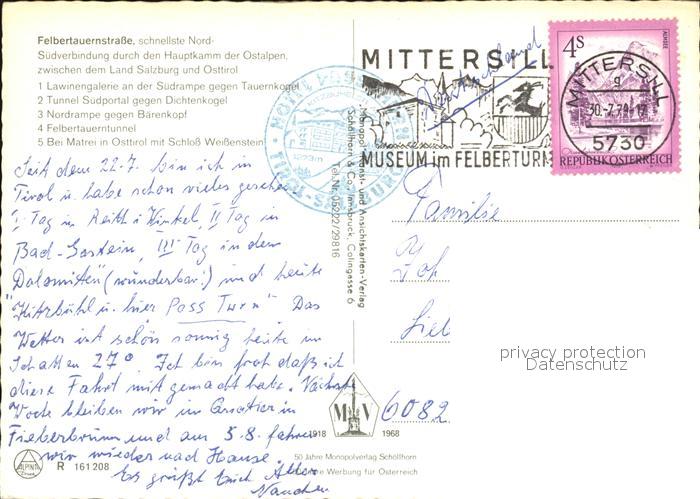 Felbertauernstraße, schnellste Nord-
Südverbindung durch den Hauptkamm der Ostalpen,
zwischen dem Land Salzburg und Osttirol
1 Lawinengalerie an der Südrampe gegen Tauernkogel
2 Tunnel Südportal gegen Dichtenkogel
3 Nordrampe gegen Bärenkopf
4 Felbertauerntunnel
5 Bei Matrei in Osttirol mit Schloß Weißenstein
Seit dem 22.7. bin ich in
Tirol u. habe schon vieles gesehen
I Tag in Reith i Winkel, II Tag in
Bad-Gastein, III Tag in dem
Dolomiten (wunderbar!) und heute
Kitzbühl u. hier Pass Turn" Das
Wetter ist schön sonnig heute im
Schatten 27° Ich bin froh daß ich
diese Fahrt mit gemacht habe. Nächste
Woche bleiben wir im Quartier in
Fieberbrunn und am 5.8. fahren
wir wieder nach Hause.
Es grüßt Euch Alle
ALPINA
DRUCK
R 161 208
Monopol Kunst- und Ansichtskarten-Verlag
Schöllhorn & Co., Innsbruck, Colingasse 6
Tel. Nr. 05222/29816
MITTERSILL
MUSEUM im FELBERTURM
Deutschland
4S
ALMSEE
REPUBLIK ÖSTERREICH
MITTERSILL
g
30.-7.79-17
5730
Familie
Joh
Lieb
6082
privacy protection
Datenschutz
M V
1918 1968
50 Jahre Monopolverlag Schöllhorn
Werbung für Österreich